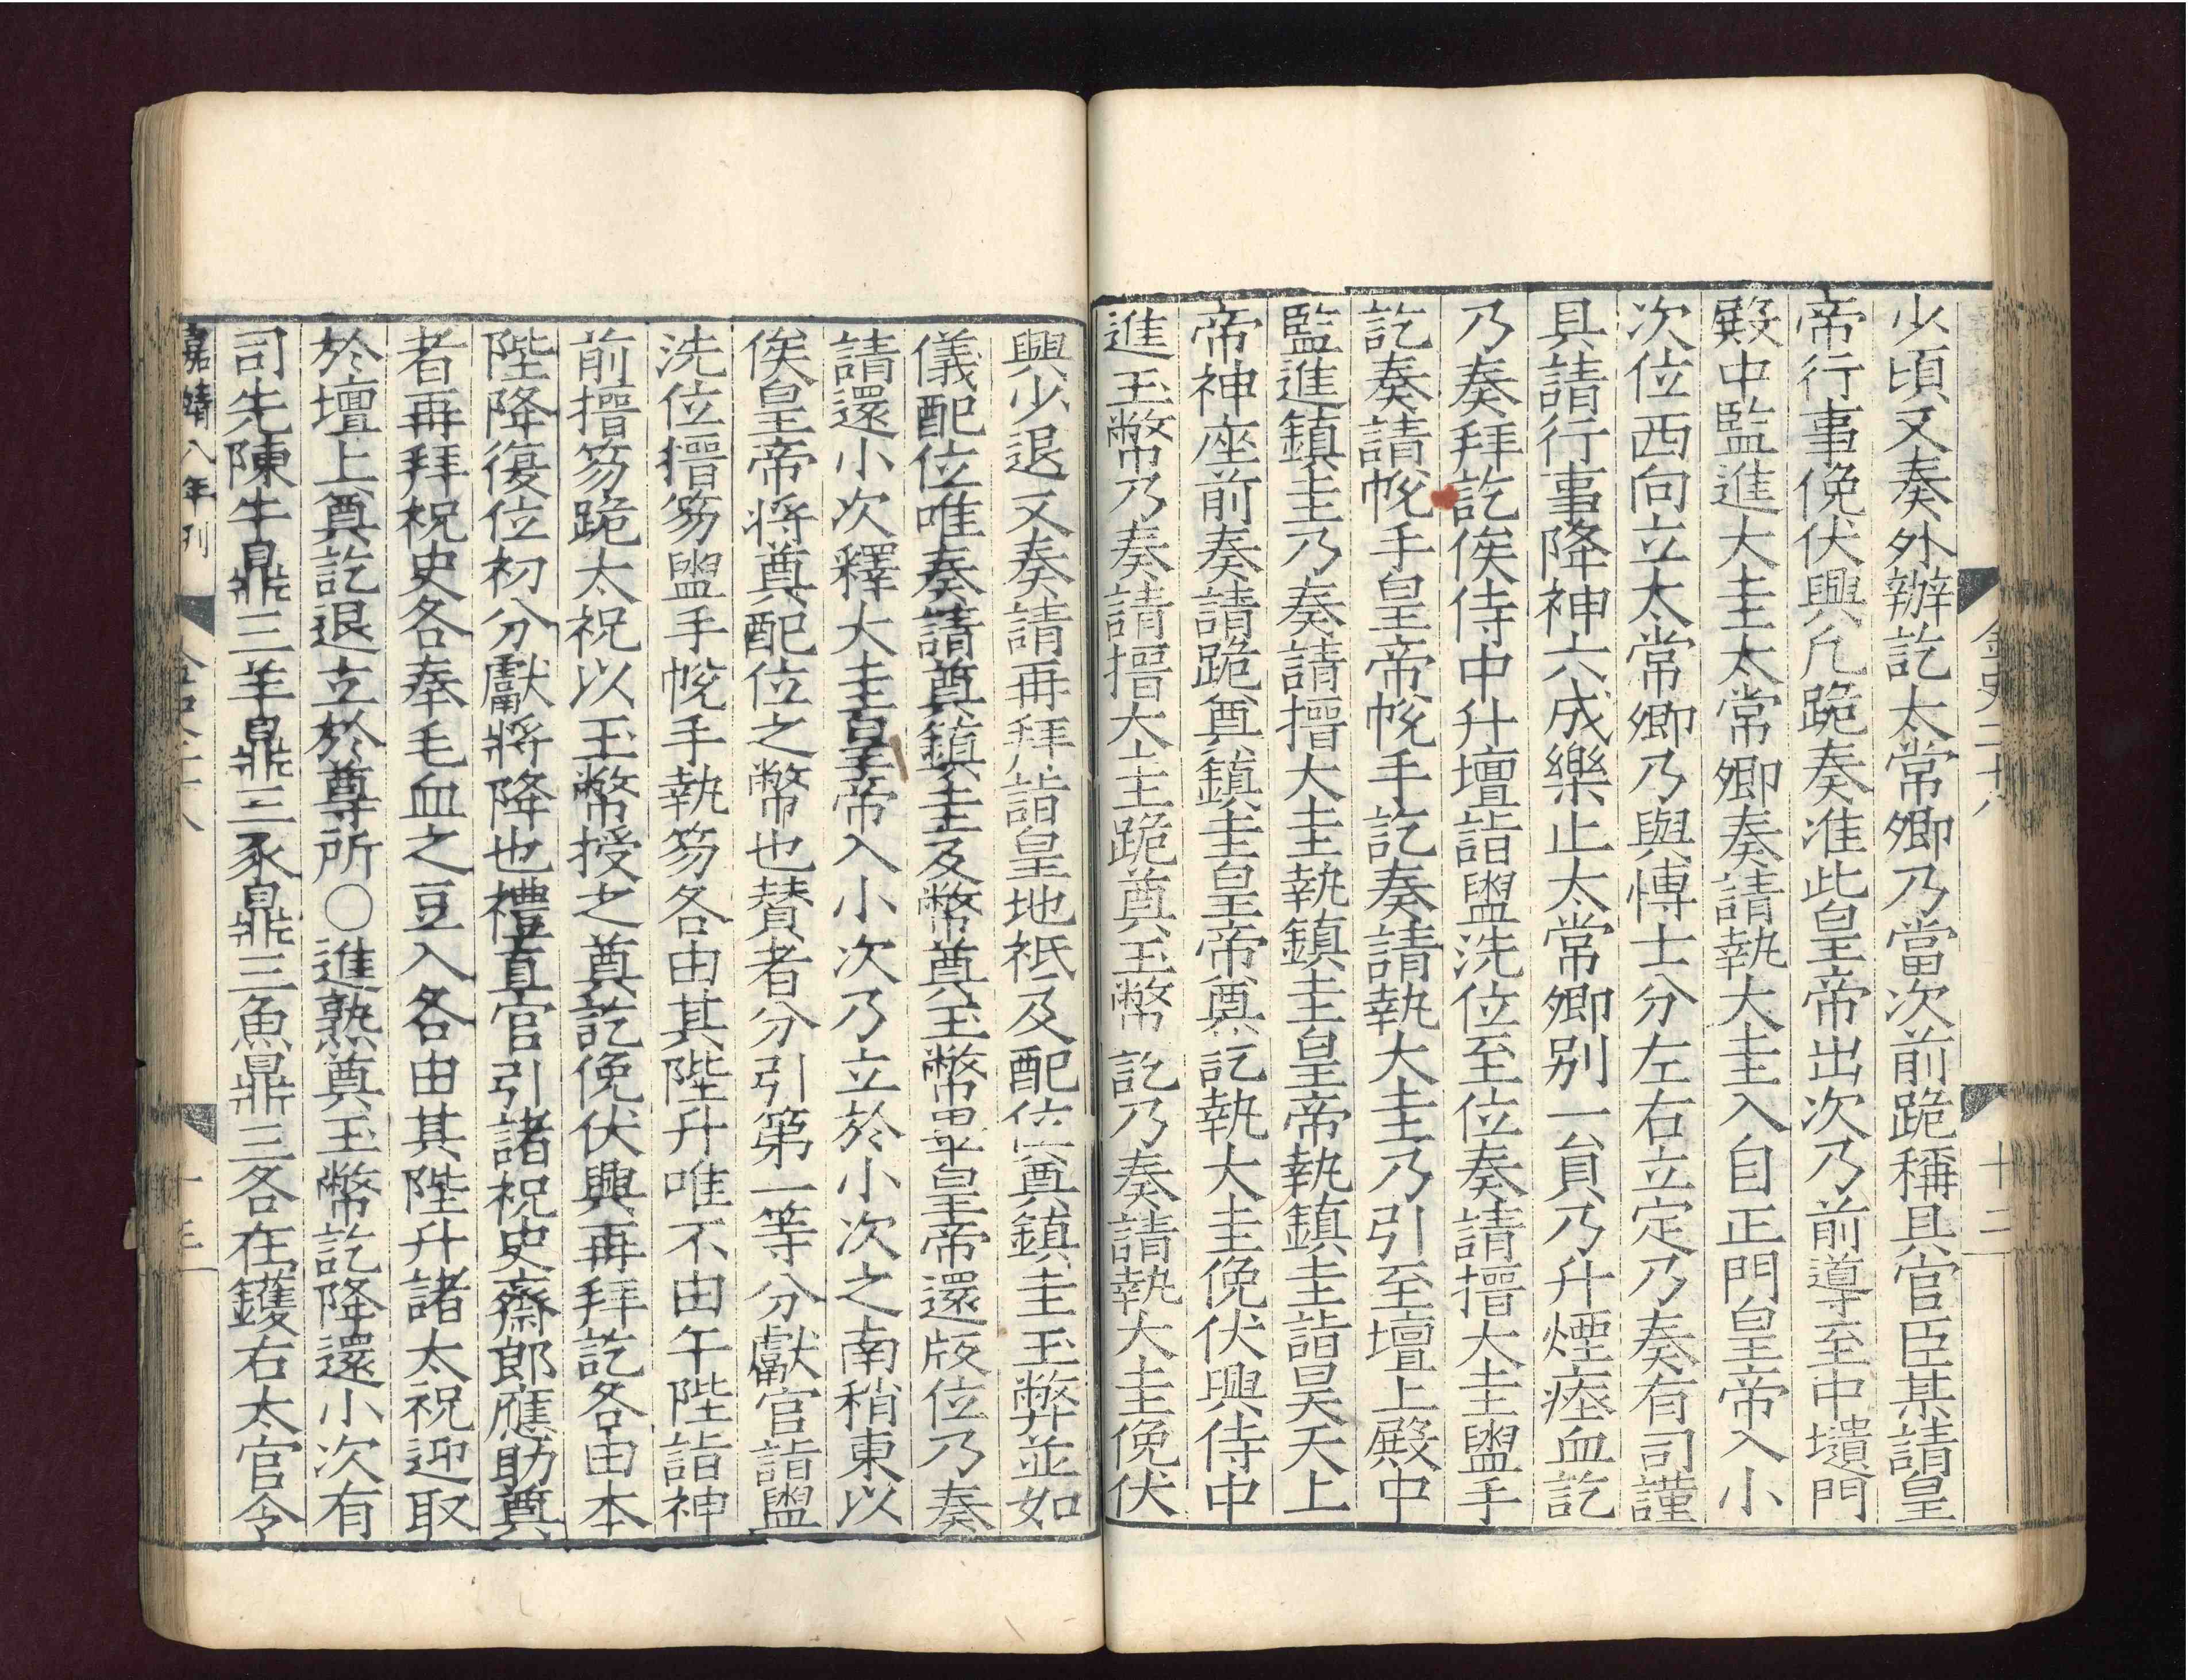 少頃又奏外辦訖太常卿乃當次前跪稱具官臣某請皇
帝行事俛伏興凡跪奏准此皇帝出次乃前導至中壝門
殿中監進大圭太常卿奏請執大圭入自正門皇帝入小
次位西向立太常卿乃與博士分左右立定乃奏有司謹
具請行事降神六成樂止太常卿別一員乃升煙瘞血訖
乃奏拜訖俟侍中升壇詣盥洗位至位奏請搢大圭盥手
訖奏請帨手皇帝帨手訖奏請執大圭乃引至壇上殿中
監進鎮圭乃奏請搢大圭執鎮圭皇帝執鎮圭詣昊天上
帝神座前奏請跪奠鎮圭皇帝奠訖執大圭俛伏興侍中
進玉幣乃奏請搢大圭跪奠玉幣訖乃奏請執大圭俛伏
金史二十八
十二
興少退又奏請再拜詣皇地祇及配位奠鎮圭玉弊並如
儀配位唯奏請奠鎮圭及幣奠玉幣畢皇帝還版位乃奏
請還小次釋大圭皇帝入小次乃立於小次之南稍東以
俟皇帝將奠配位之幣也贊者分引第一等分獻官詣盥
洗位搢笏盥手帨手執笏各由其陛升唯不由午陛詣神
前搢笏跪太祝以玉幣授之奠訖俛伏興再拜訖各由本
陛降復位初分獻將降也禮直官引諸祝史齋郎應助奠
者再拜祝史各奉毛血之豆入各由其陛升諸太祝迎取
於壇上奠訖退立於尊所○進熟奠玉幣訖降還小次有
司先陳牛鼎三羊鼎三豕鼎三魚鼎三各在鑊右太官令
嘉靖八年刊